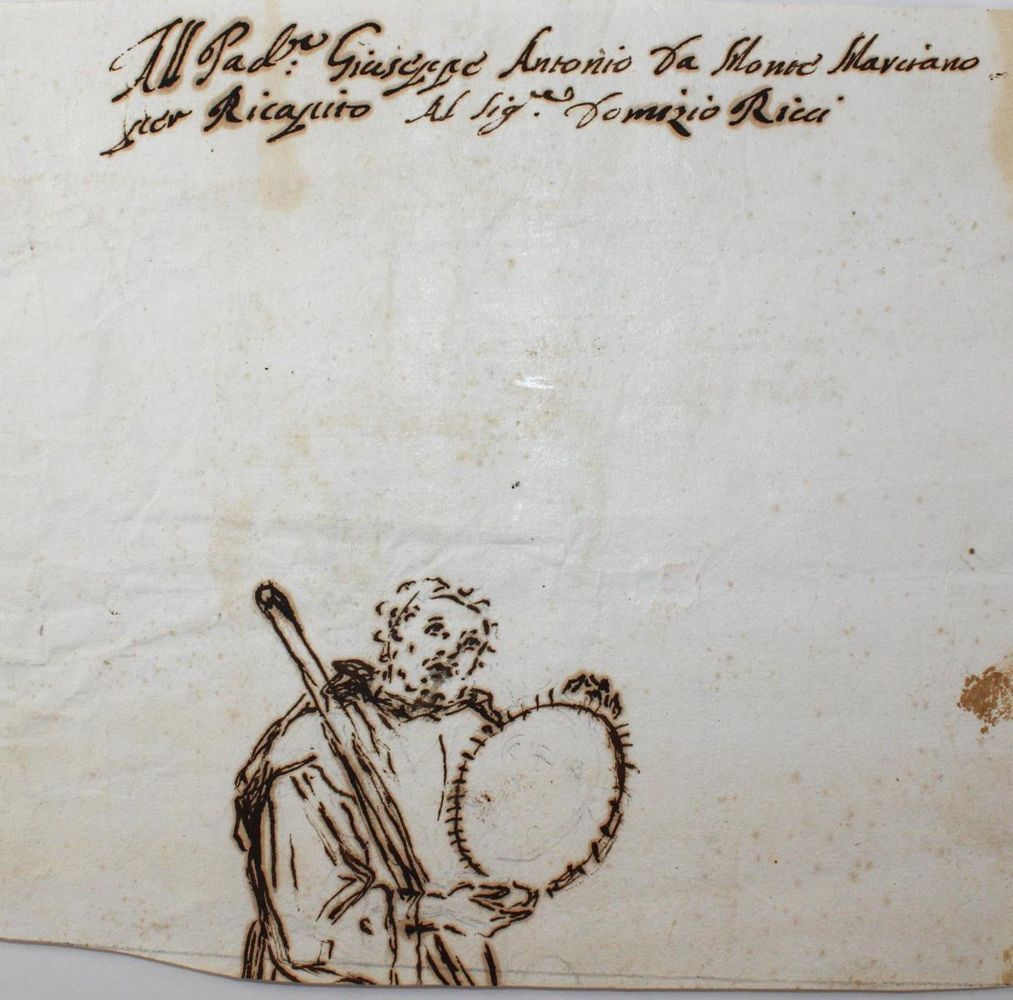 All Pad.re Giuseppe Antonio Da Monte Marciano
per Ricapito Al Sig.re Domizio Ricci